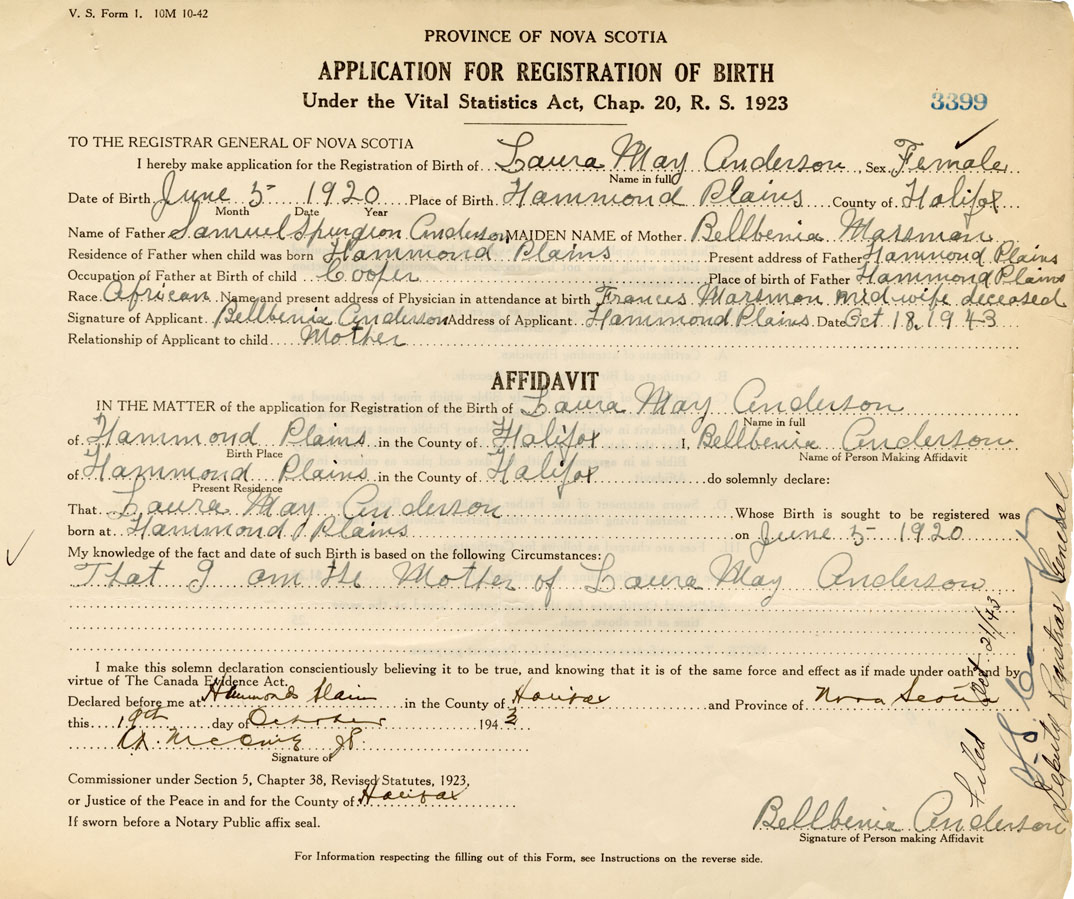 V. S. Form 1. 10M 10-42
PROVINCE OF NOVA SCOTIA
APPLICATION FOR REGISTRATION OF BIRTH
Under the Vital Statistics Act, Chap. 20, R. S. 1923
3399
TO THE REGISTRAR GENERAL OF NOVA SCOTIA
I hereby make application for the Registration of Birth of Laura May Anderson, Sex Female
Name in full
Date of Birth June 5 1920 Place of Birth Hammond Plains County of Halifax
Month Date Year
Name of Father Samuel Spurgion Anderson MAIDEN NAME of Mother Bellbenia Marsman
Residence of Father when child was born Hammond Plains Present address of Father Hammond Plains
Occupation of Father at Birth of child Cooper Place of birth of Father Hammond Plains
Race African Name and present address of Physician in attendance at birth Frances Marsman midwife deceased
Signature of Applicant Bellbenia Anderson Address of Applicant Hammond Plains Date Oct 18, 1943
Relationship of Applicant to child Mother
AFFIDAVIT
IN THE MATTER of the application for Registration of the Birth of Laura May Anderson
Name in full
of Hammond Plains in the County of Halifax I, Bellbenia Anderson
Birth Place Name of Person Making Affidavit
of Hammond Plains in the County of Halifax do solemnly declare:
Present Residence
That Laura May Anderson Whose Birth is sought to be registered was
born at Hammond Plains on June 5 1920
My knowledge of the fact and date of such Birth is based on the following Circumstances:
That I am the Mother of Laura May Anderson
I make this solemn declaration conscientiously believing it to be true, and knowing that it is of the same force and effect as if made under oath and by
virtue of The Canada Evidence Act.
Declared before me at Hammonds Plain in the County of Halifax and Province of Nova Scotia
this 19th day of October 1943
J.P.
Signature of
Commissioner under Section 5, Chapter 38, Revised Statutes, 1923,
or Justice of the Peace in and for the County of Halifax
If sworn before a Notary Public affix seal.
Bellbenia Anderson
Signature of Person making Affidavit
For Information respecting the filling out of this Form, see Instructions on the reverse side.
Filed Oct. 21/43
Deputy Registrar General